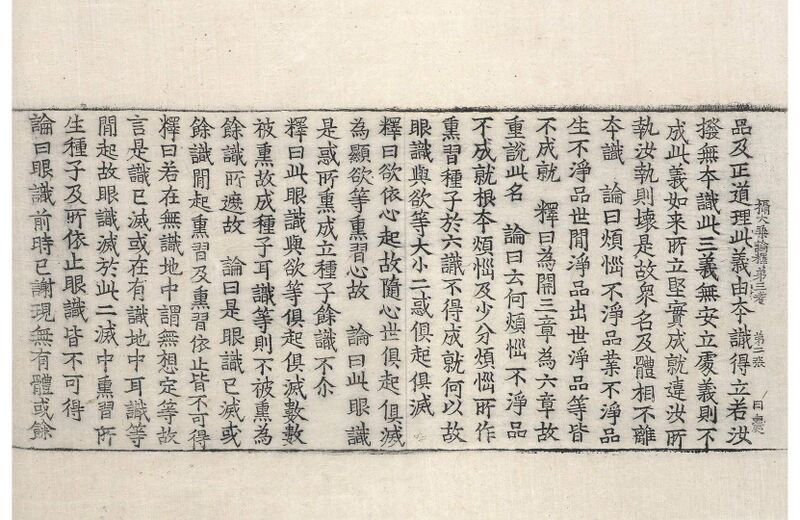 品及正道理此義由本識得立若汝
攝大乗論釋第三卷 第二張
撥無本識此三義無安立處義則不
成此義如来所立堅實成就違汝所
執汝執則壞是故衆名及體相不離
本識 論曰煩惱不淨品業不淨品
生不淨品世閒淨品出世淨品等皆
不成就 釋曰為開三章為六章故
重說此名 論曰云何煩惱不淨品
不成就根本煩惱及少分煩惱所作
熏習種子於六識不得成就何以故
眼識與欲等大小二惑俱起俱滅
釋曰欲依心起故隨心世俱起俱滅
為顯欲等熏習心故 論曰此眼識
是惑所熏成立種子餘識不尒
釋曰此眼識與欲等俱起俱滅數數
被熏故成種子耳識等則不被熏為
餘識所遮故 論曰是眼識已滅或
餘識閒起熏習及熏習依止皆不可得
釋曰若在無識地中謂無想定等故
言是識已滅或在有識地中耳識等
閒起故眼識滅於此二滅中熏習所
生種子及所依止眼識皆不可得
論曰眼識前時已謝現無有體或餘